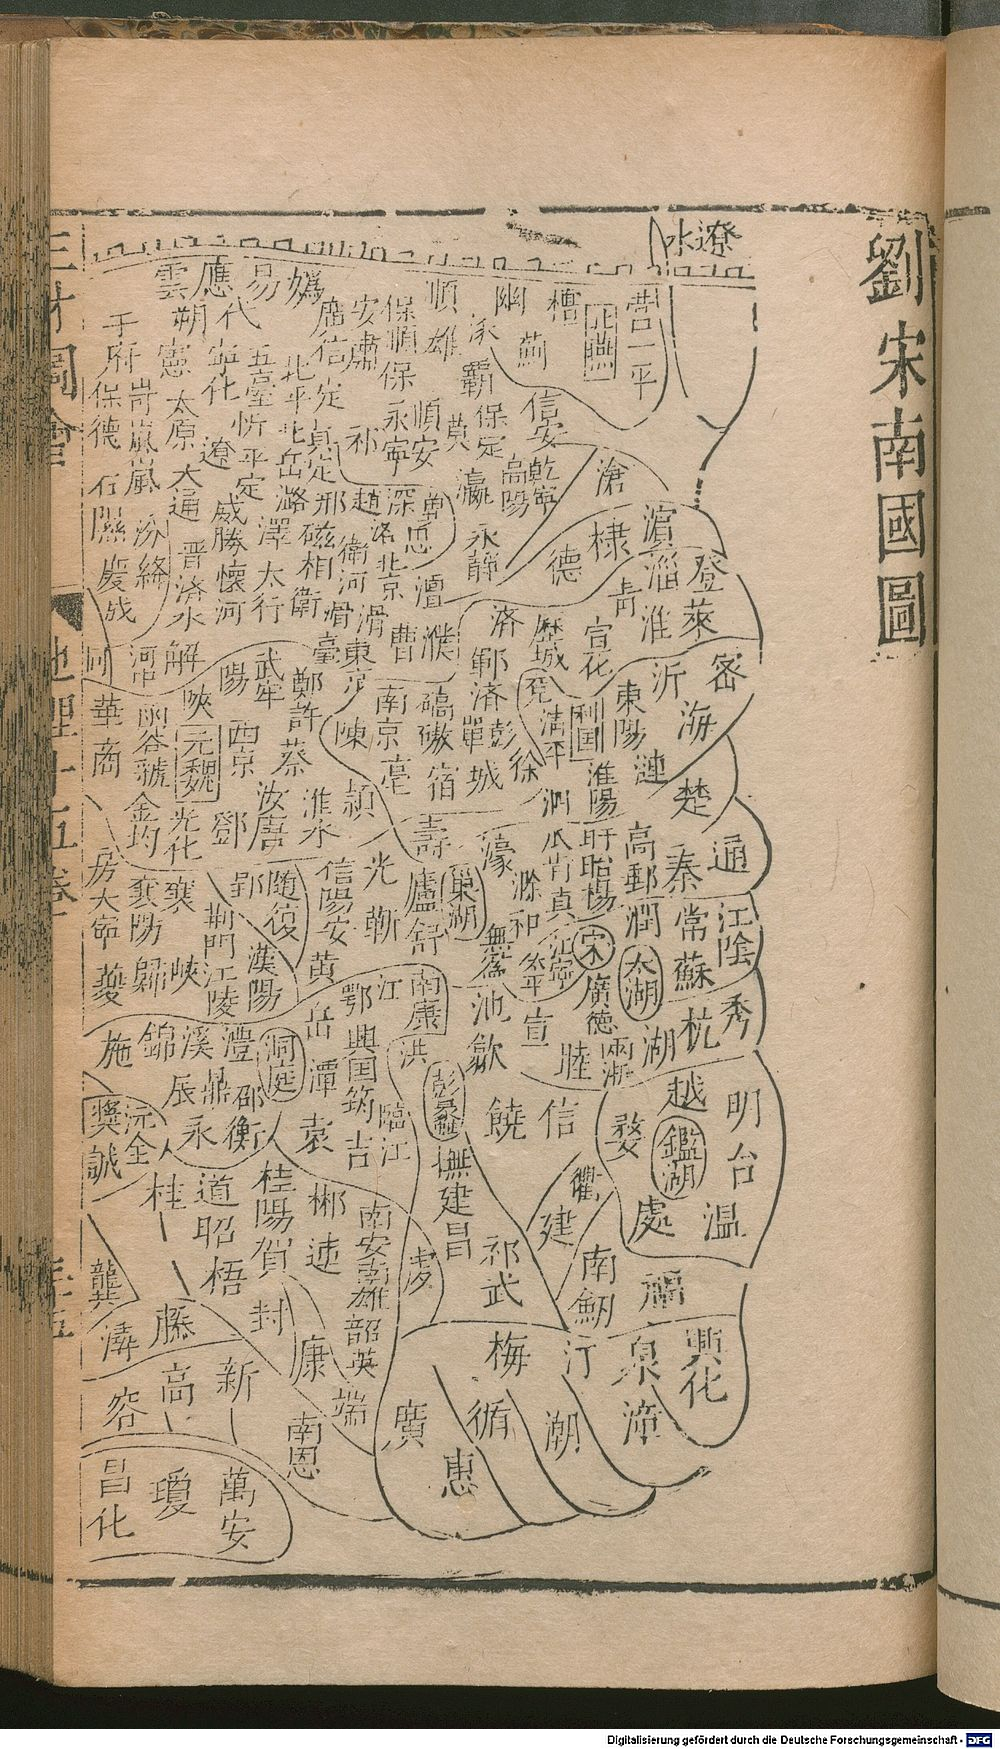 劉宋南國圖
遼水
營
平
正燕
檀
薊
幽
涿
順
雄
霸
保定
莫
信安
乾寧
高陽
瀛
滄
永靜
保順
保
永寧
順安
安肅
廣信
媯
易
應
雲
朔
代
寧化
憲
府
保德
岢嵐
嵐
太原
五臺
忻
平定
北平
北岳
定
真定
祁
深
趙
邢
洺
磁
相
衛
潞
澤
太行
遼
威勝
大通
石
隰
汾
絳
晉
濟水
懷
河
慶成
衛河
滑
北京
澶
濮
曹
滑臺
東京
德
棣
濱
淄
青
登
萊
淮
濟
鄆
歷城
宣化
密
沂
海
東陽
漣
兗
清平
濟
單
彭城
徐
南京
亳
碻磝
宿
陳
潁
鄭
許
蔡
武牢
陽
解
河中
同
華
商
陝
函谷
虢
元魏
西京
汝
唐
鄧
金
均
光化
淮水
淮陽
泗
楚
通
泰
高郵
盱眙
揚
瓜步
真
滁
和
濠
壽
廬
舒
巢湖
光
蘄
信陽
安
黃
隨
復
郢
荊門
江陵
漢陽
襄
襄陽
房
大寧
夔
歸
峽
施
錦
溪
澧
辰
鼎
洞庭
岳
潭
鄂
興國
筠
江
南康
洪
彭蠡
臨江
吉
袁
無為
池
歙
江寧
太平
宣
宋
廣德
潤
常
江陰
蘇
太湖
湖
杭
秀
兩浙
睦
越
明
台
溫
處
婺
鑑湖
衢
信
饒
撫
建昌
建
邵武
南劍
福
興化
泉
漳
汀
潮
梅
循
惠
廣
虔
南安
南雄
韶
英
端
康
南恩
封
賀
桂陽
郴
連
道
昭
梧
桂
永
邵
衡
沅
全
誠
龔
藤
高
新
容
昌化
瓊
萬安
三才圖會
地理十五卷
Digitalisierung gefördert durch die Deutsche Forschungsgemeinschaft - DFG